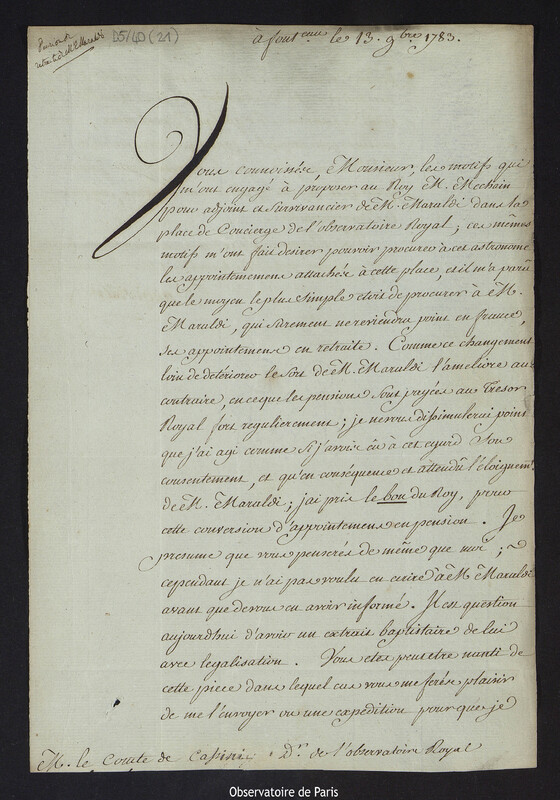 Pension de
retraite de M. Maraldi
D5/40 (21)
à font.eau le 13. 9bre 1783.
Vous connoissés, Monsieur, les motifs qui
m'ont engagé à proposer au Roy M. Mechain
pour adjoint et survivancier de M. Maraldi dans la
place de Concierge de l'observatoire Royal; ces mêmes
motifs m'ont fait desirer pouvoir procurer à cet astronome
les appointemens attachés à cette place, et il m'a paru
que le moyen le plus simple etoit de procurer à M.
Maraldi, qui surement ne reviendra point en france,
ses appointemens en retraite. Comme ce changement
loin de détériorer le sort de M. Maraldi l'améliore au
contraire, en ce que les pensions sont payées au Tresor
Royal fort regulierement; je ne vous dissimulerai point
que j'ai agi comme si j'avois eû à cet egard son
consentement, et qu'en conséquence et attendû l'éloignem.t
de M. Maraldi; j'ai pris le bon du Roy, pour
cette conversion d'appointemens en pension. Je
presume que vous penserés de même que moi;
cependant je n'ai pas voulu en ecrire à M. Maraldi
avant que de vous en avoir informé. Il est question
aujourdhui d'avoir un extrait baptistaire de lui
avec legalisation. Vous etes peut etre nanti de
cette piece dans lequel cas vous me ferés plaisir
de me l'envoyer ou une expedition pour que je
M. le Comte de Cassini D.r de l'observatoire Royal
Observatoire de Paris